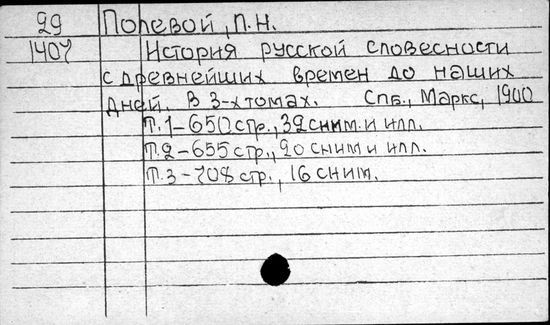 29 Полевой, П.Н.
1407 История русской словесности
с древнейших времен до наших
дней. В 3-х томах. Спб., Маркс, 1900
Т.1-650 стр., 32 сним. и илл.
Т.2-655 стр., 20 сним и илл.
Т.3-708 стр., 16 сним.